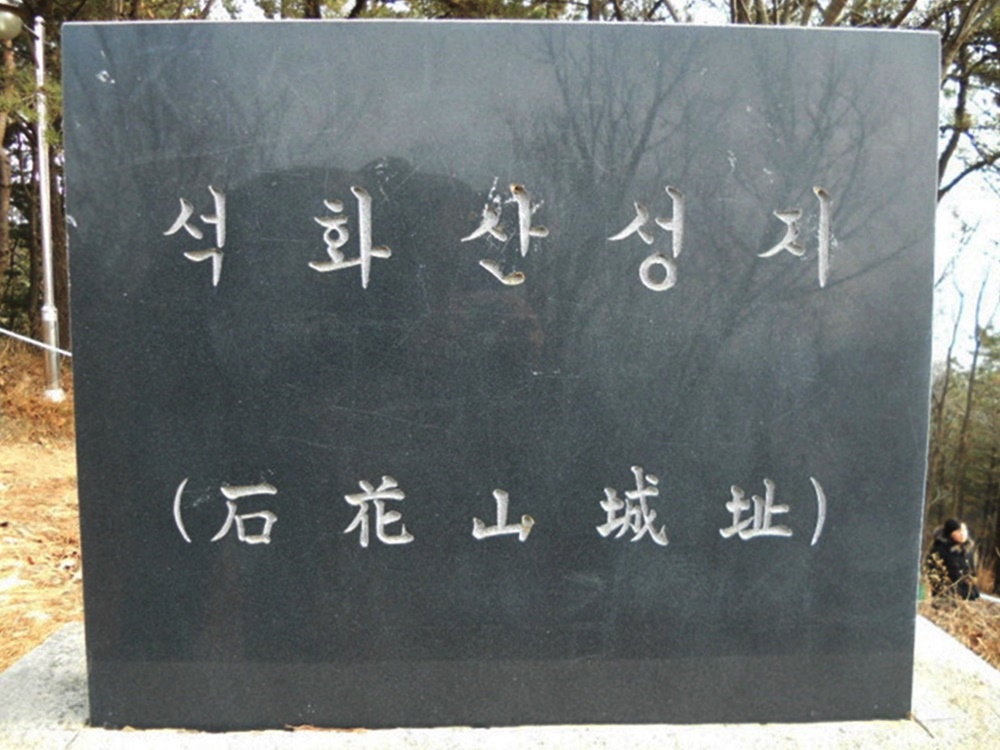 석화산성지
(石花山城址)